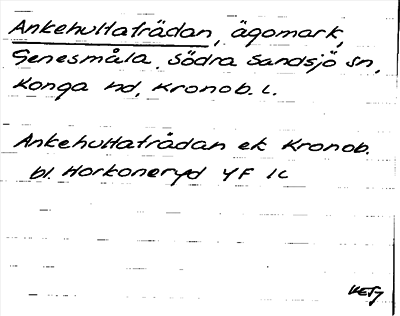 Ankehultaträdan, ägomark,
Genesmåla, Södra Sandsjö sn,
Konga hd, Kronob. l.
Ankehultaträdan ek Kronob.
bl. Horkoneryd 4F 1c